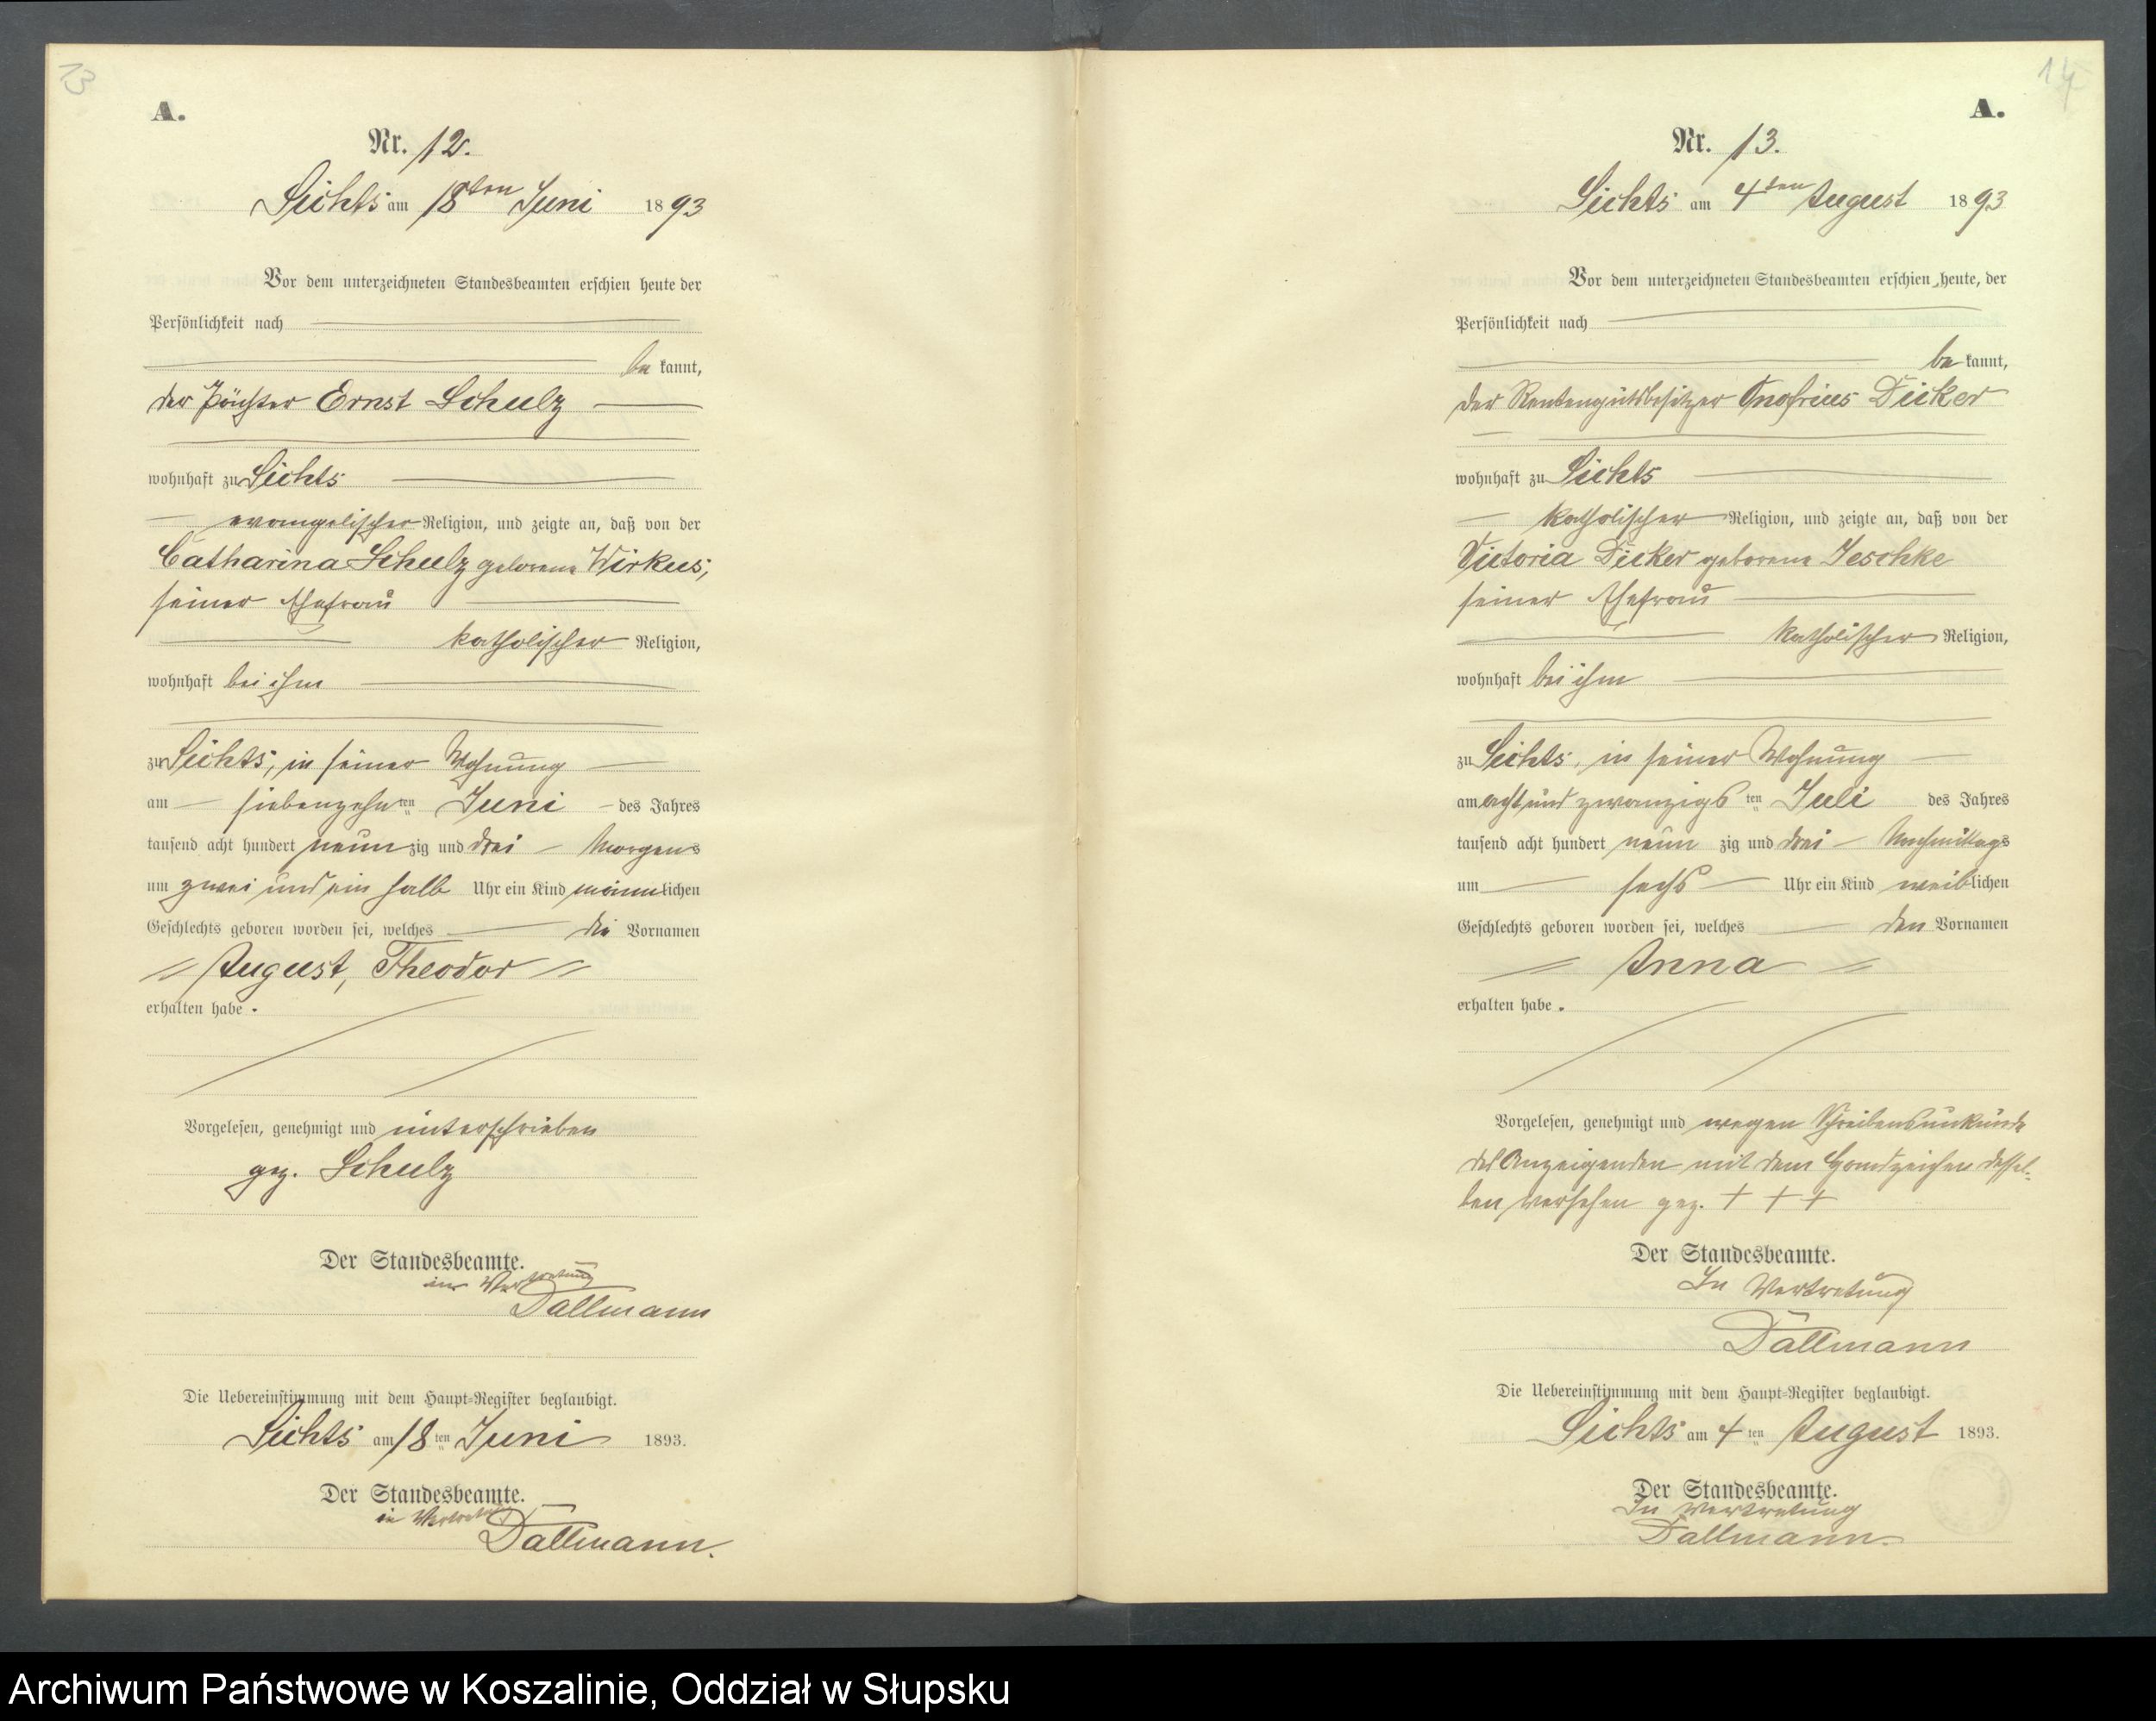 13
A.
Nr. 12.
Lichts am 18ten Juni 1893
Vor dem unterzeichneten Standesbeamten erschien heute der
Persönlichkeit nach
be kannt,
der Pächter Ernst Schulz
wohnhaft zu Lichts
evangelischer Religion, und zeigte an, daß von der
Catharina Schulz geborene Wirkus,
seiner Ehefrau
katholischer Religion,
wohnhaft bei ihm
zu Lichts, in seiner Wohnung
am siebenzehnten Juni des Jahres
tausend acht hundert neunzig und drei Morgens
um zwei und ein halb Uhr ein Kind männlichen
Geschlechts geboren worden sei, welches die Vornamen
August, Theodor
erhalten habe.
Vorgelesen, genehmigt und unterschrieben
gez. Schulz
Der Standesbeamte.
in Vertretung
Dallmann
Die Uebereinstimmung mit dem Haupt-Register beglaubigt.
Lichts am 18ten Juni 1893.
Der Standesbeamte.
in Vertretung
Dallmann.
14
A.
Nr. 13.
Lichts am 4ten August 1893
Vor dem unterzeichneten Standesbeamten erschien heute, der
Persönlichkeit nach
be kannt,
der Rentengutsbesitzer Onofrius Dicker
wohnhaft zu Lichts
katholischer Religion, und zeigte an, daß von der
Victoria Dicker geborene Jeschke
seiner Ehefrau
katholischer Religion,
wohnhaft bei ihm
zu Lichts, in seiner Wohnung
am acht und zwanzigsten Juli des Jahres
tausend acht hundert neun zig und drei Nachmittags
um sechs Uhr ein Kind weiblichen
Geschlechts geboren worden sei, welches den Vornamen
Anna
erhalten habe.
Vorgelesen, genehmigt und wegen Schreibensunkunde
des Anzeigenden mit dem Handzeichen dessel-
ben versehen gez. + + +
Der Standesbeamte.
In Vertretung
Dallmann
Die Uebereinstimmung mit dem Haupt-Register beglaubigt.
Lichts am 4ten August 1893.
Der Standesbeamte.
In Vertretung
Dallmann.
Archiwum Państwowe w Koszalinie, Oddział w Słupsku